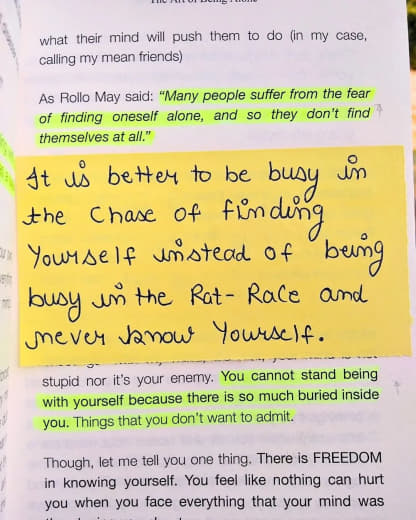 The Art of Being Alone
what their mind will push them to do (in my case,
calling my mean friends)
As Rollo May said: “Many people suffer from the fear
of finding oneself alone, and so they don’t find
themselves at all.”
It is better to be busy in
the Chase of finding
Yourself instead of being
busy in the Rat-Race and
never know Yourself.
stupid nor it’s your enemy. You cannot stand being
with yourself because there is so much buried inside
you. Things that you don’t want to admit.
Though, let me tell you one thing. There is FREEDOM
in knowing yourself. You feel like nothing can hurt
you when you face everything that your mind was